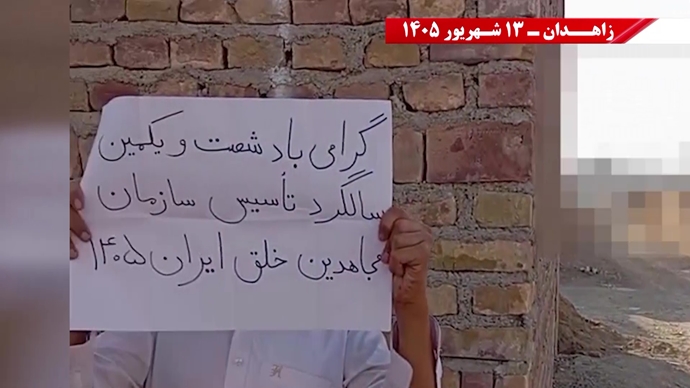 زاهدان ـ ۱۳ شهریور ۱۴۰۵
گرامی باد شصت و یکمین
سالگرد تأسیس سازمان
مجاهدین خلق ایران ۱۴۰۵